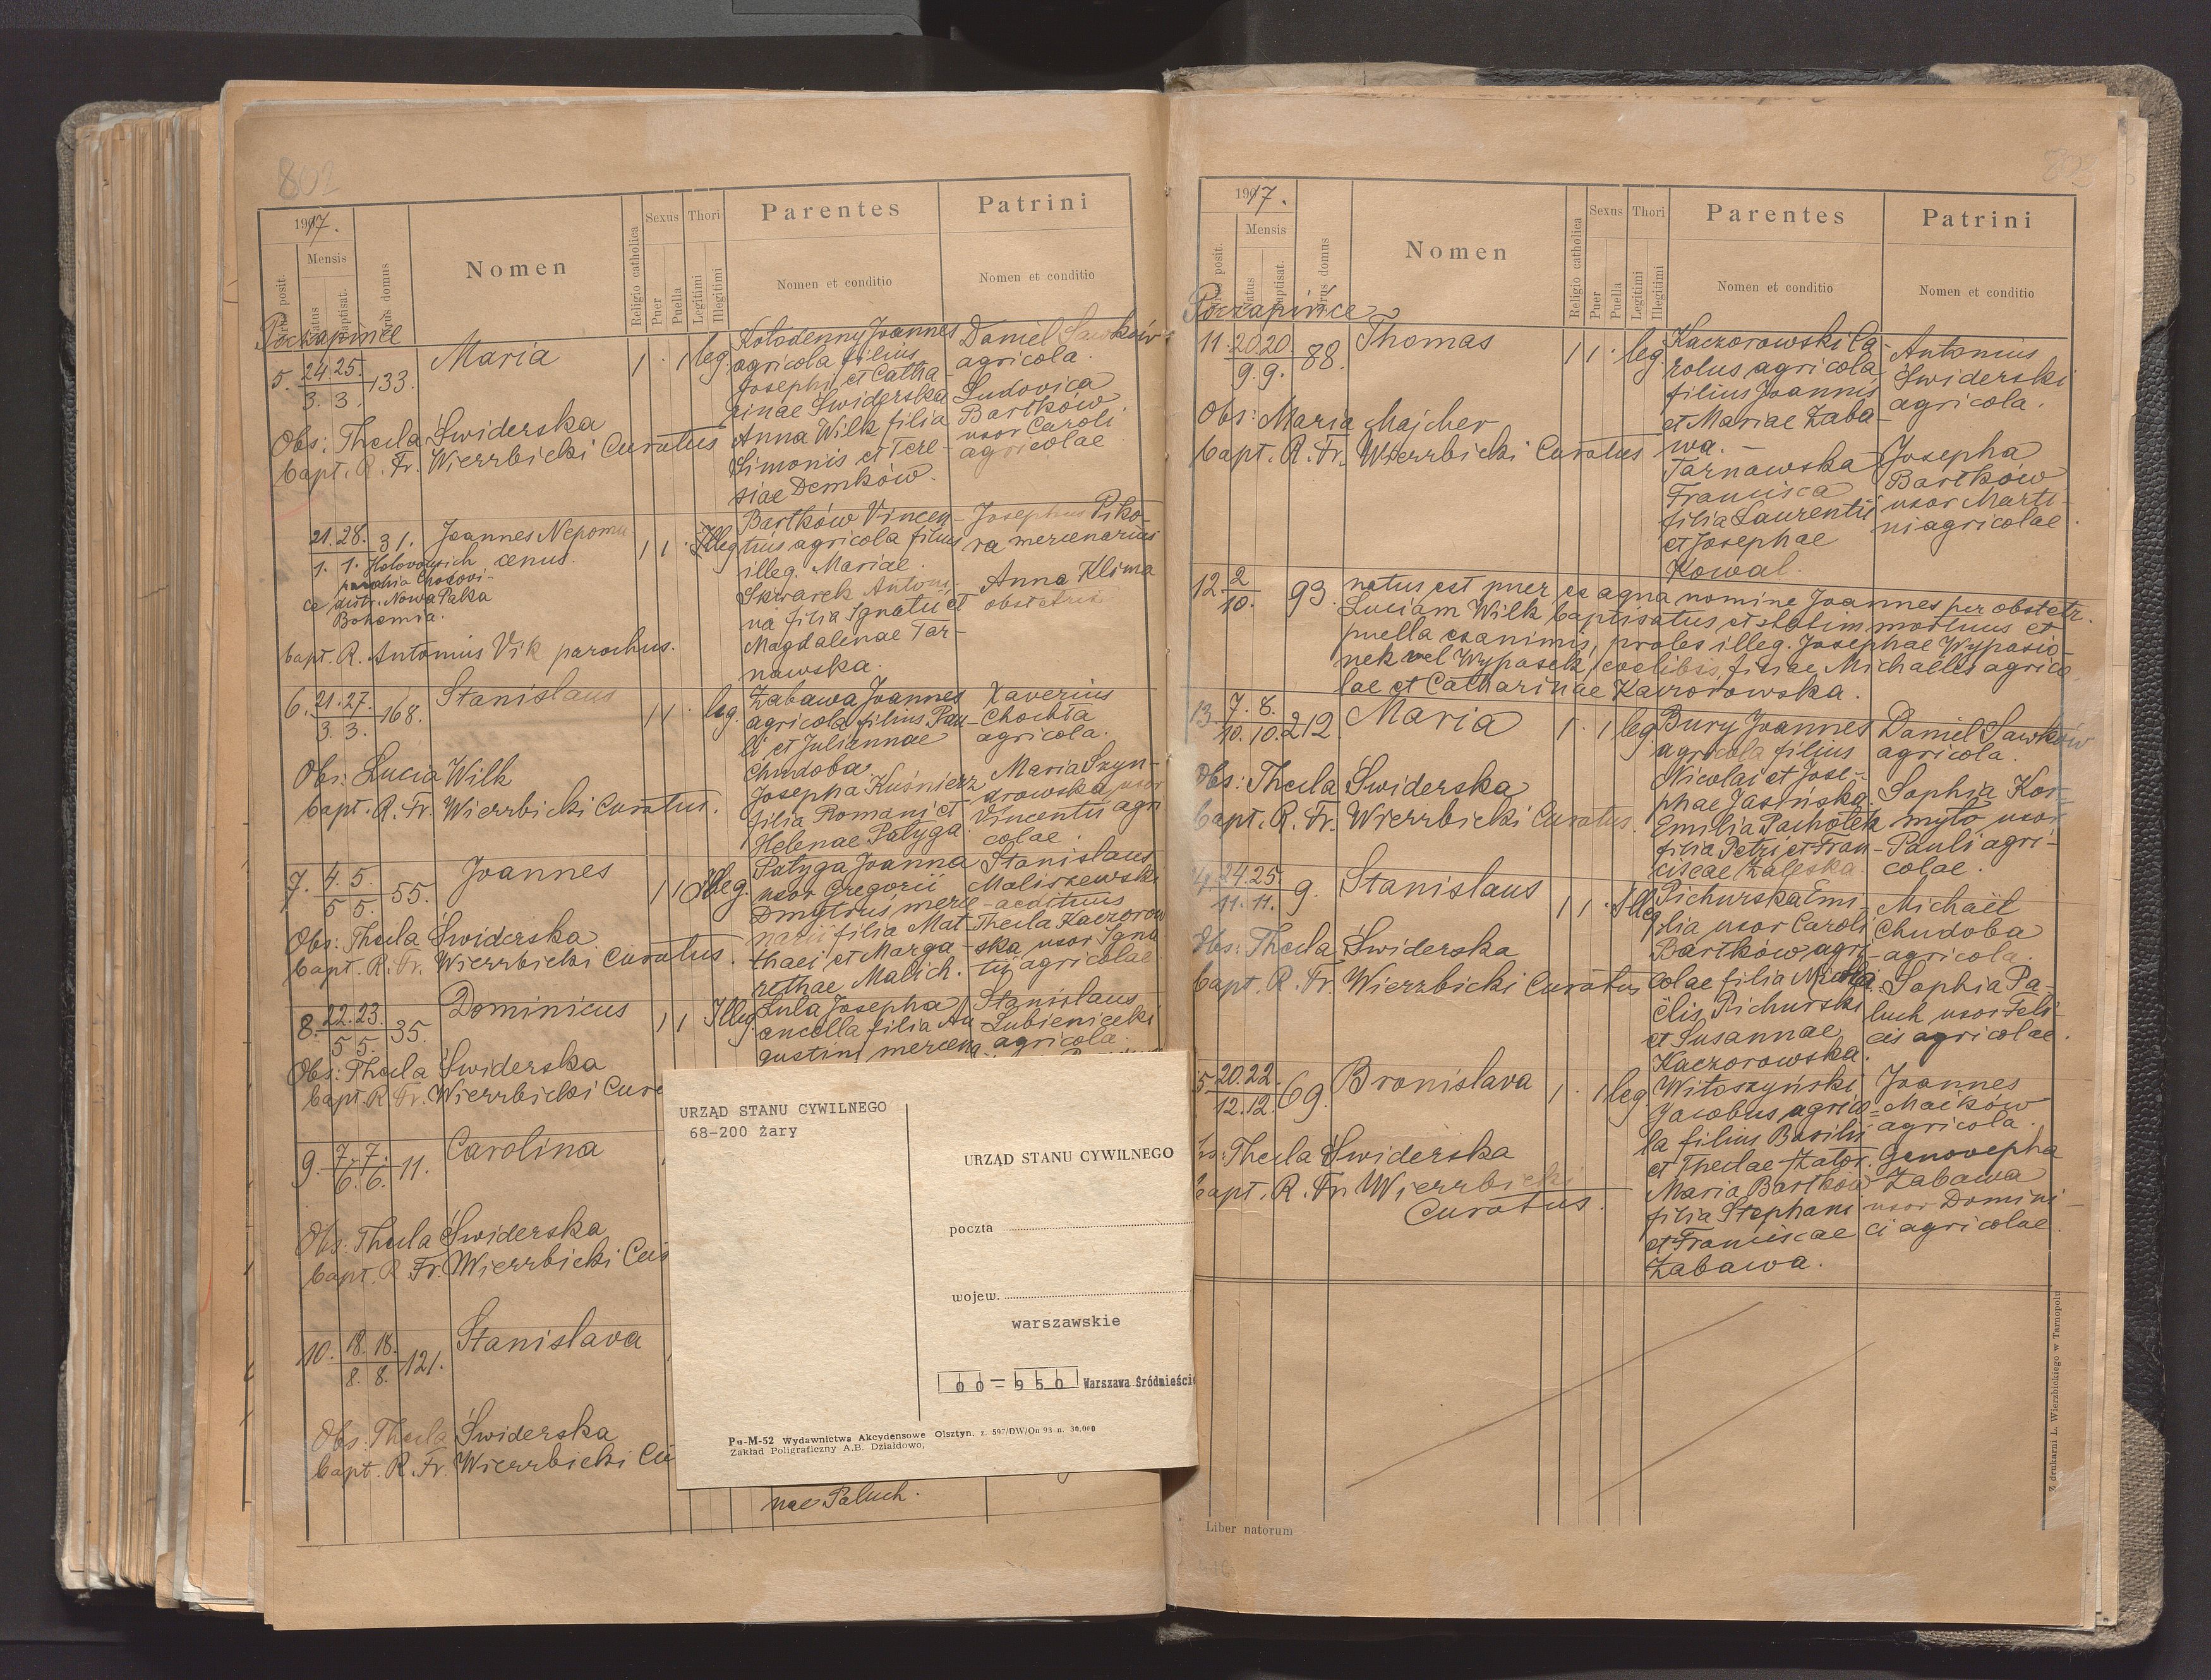 802
1917.
Mensis
Nomen
Religio catholica
Sexus
Puer
Puella
Thori
Legitimi
Illegitimi
Parentes
Nomen et conditio
Patrini
Nomen et conditio
Poczapińce
5. 24. 25. 133. Maria 1 . 1 leg.
3. 3.
Kołodenny Joannes
agricola filius
Josephi et Catha-
rinae Świderska
Anna Wilk filia
Simonis et Tere-
siae Demków.
Daniel Sawków
agricola.
Ludovica
Bartków
uxor Caroli
agricolae
Obs: Thecla Świderska
bapt. R. Fr. Wierzbicki Curatus
21. 28. 31. Joannes Nepomu
1. 1. cenus. 1 1 . Illeg
parohia Chodovi-
ce distr. Nowa Paka
Bohemia.
Bartków Vincen-
tius agricola filius
illeg. Mariae.
Skwarek Antoni-
na filia Ignatii et
Magdalenae Tar-
nawska.
Josephus Piko-
ra mercenarius
Anna Klima
obstetrix
bapt. R. Antonius Vik parochus.
6. 21. 27. 168. Stanislaus 1 1 . leg.
3. 3.
Zabawa Joannes
agricola filius Pau-
li et Juliannae
Chudoba.
Josepha Kuśnierz
filia Romani et
Helenae Patyga.
Xaverius
Chochła
agricola.
Maria Szyn-
drowska uxor
Vincentii agri
colae.
Obs: Lucia Wilk
bapt. R. Fr. Wierzbicki Curatus.
7. 4. 5. 55. Joannes 1 1 Illeg.
5 5.
Patyga Joanna
uxor Gregorii
Dmytruś merce-
narii filia Mat-
thaei et Marga-
rethae Malich.
Stanislaus
Maliszewski
aedituus
Thecla Kaczorow
ska uxor Igna
tii agricolae
Obs: Thecla Świderska
bapt. R. Fr. Wierzbicki Curatus.
8. 22. 23. 35. Dominicus 1 1 Illeg
5 5.
Lula Josepha
ancilla filia Au
gustini mercena
Stanislaus
Lubieniecki
agricola.
Obs: Thecla Świderska
bapt. R. Fr. Wierzbicki Cura
9. 7. 7. 11. Carolina
6. 6.
Obs: Thecla Świderska
bapt. R. Fr. Wierzbicki Cur
10. 18. 18. 121. Stanislava
8. 8.
Obs: Thecla Świderska
bapt. R. Fr. Wierzbicki Cu
nae Paluch.
URZĄD STANU CYWILNEGO
68-200 Żary
URZĄD STANU CYWILNEGO
poczta
wojew.
warszawskie
00-950 Warszawa Śródmieście
Pu-M-52 Wydawnictwa Akcydensowe Olsztyn, z. 597/DW/On 93 n. 30.000
Zakład Poligraficzny A.B. Działdowo,
1917.
Mensis
Nomen
Religio catholica
Sexus
Puer
Puella
Thori
Legitimi
Illegitimi
Parentes
Nomen et conditio
Patrini
Nomen et conditio
Poczapińce
11. 20 20 88. Thomas 1 1 . leg.
9. 9.
Kaczorowski Ca-
rolus agricola
filius Joannis
et Mariae Zaba-
wa.
Tarnawska
Francisca
filia Laurentii
et Josephae
Kowal.
Antonius
Świderski
agricola.
Josepha
Bartków
uxor Marti-
ni agricolae.
Obs: Maria Majcher
bapt. R. Fr. Wierzbicki Curatus
12. 2 93. natus est puer ex aqua nomine Joannes per obstetr.
10. Luciam Wilk baptisatus et statim mortuus et
puella exanimis, proles illeg. Josephae Wypasio-
nek vel Wypasek, coelibis, filiae Michaelis agrico
lae et Catharinae Kaczorowska.
13. 7. 8. 212. Maria 1 . 1 leg
10. 10.
Bury Joannes
agricola filius
Nicolai et Jose-
phae Jasińska.
Emilia Pachołek
filia Petri et Fran-
ciscae Zaleska.
Daniel Sawków
agricola.
Sophia Kor-
myło uxor
Pauli agri-
colae.
Obs: Thecla Świderska
bapt. R. Fr. Wierzbicki Curatus.
14 24. 25. 9. Stanislaus 1 1 . Illeg
11. 11.
Pichurska Emi-
lia uxor Caroli
Bartków agri-
colae filia Micha
ëlis Pichurski
et Susannae
Kaczorowska.
Michaël
Chudoba
agricola.
Sophia Pa-
luch uxor Feli-
cis agricolae.
Obs: Thecla Świderska
bapt. R. Fr. Wierzbicki Curatus
5 20. 22. 69. Bronislava 1 . 1 leg.
12. 12.
Witoszyński
Jacobus agrico-
la filius Basilii
et Theclae
Maria Bartków
filia Stephani
et Franciscae
Zabawa.
Joannes
Maćków
agricola.
Genovepha
Zabawa
uxor Domini-
ci agricolae.
Thecla Świderska
bapt. R. Fr. Wierzbicki
Curatus.
Liber natorum
Z drukarni L. Wierzbickiego w Tarnopolu